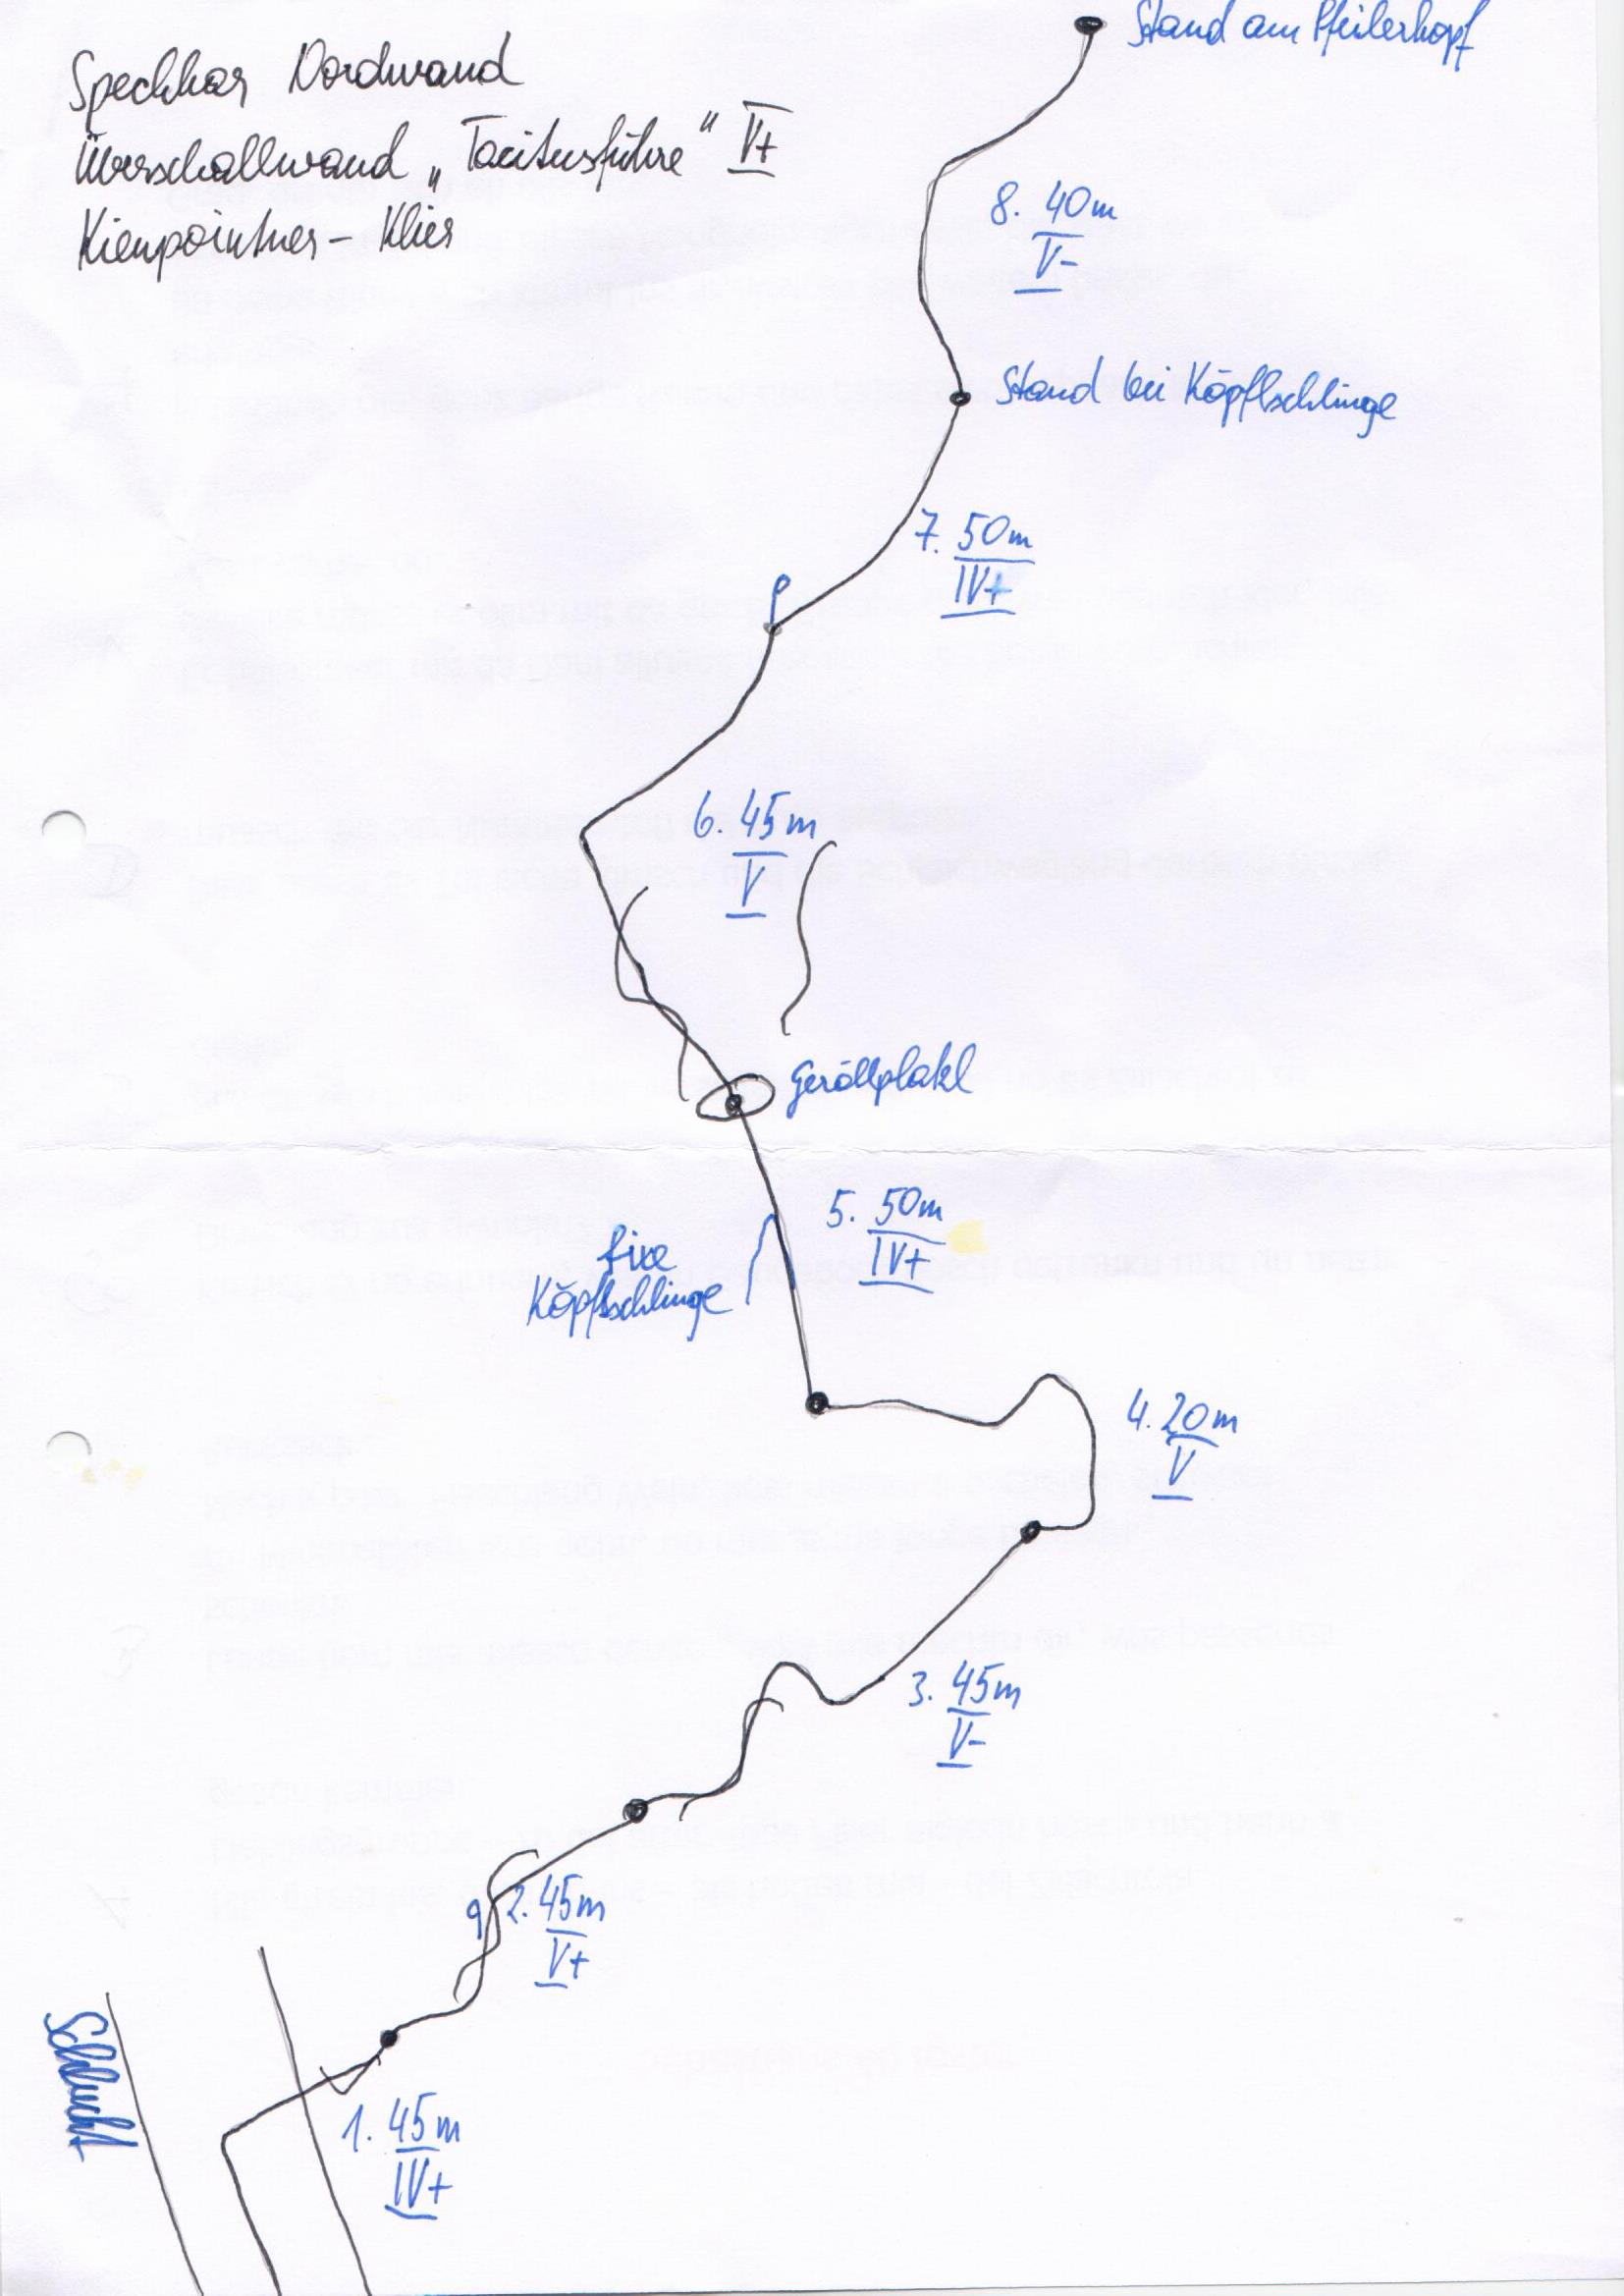 Speckkar Nordwand
Überschallwand „Tacitusführe" V+
Kienpointner – Klier
Stand am Pfeilerkopf
8. 40m
V-
Stand bei Köpflschlinge
7. 50m
IV+
6. 45m
V
Geröllplatzl
5. 50m
IV+
fixe
Köpflschlinge
4. 20m
V
3. 45m
V-
2. 45m
V+
Schlucht
1. 45m
IV+